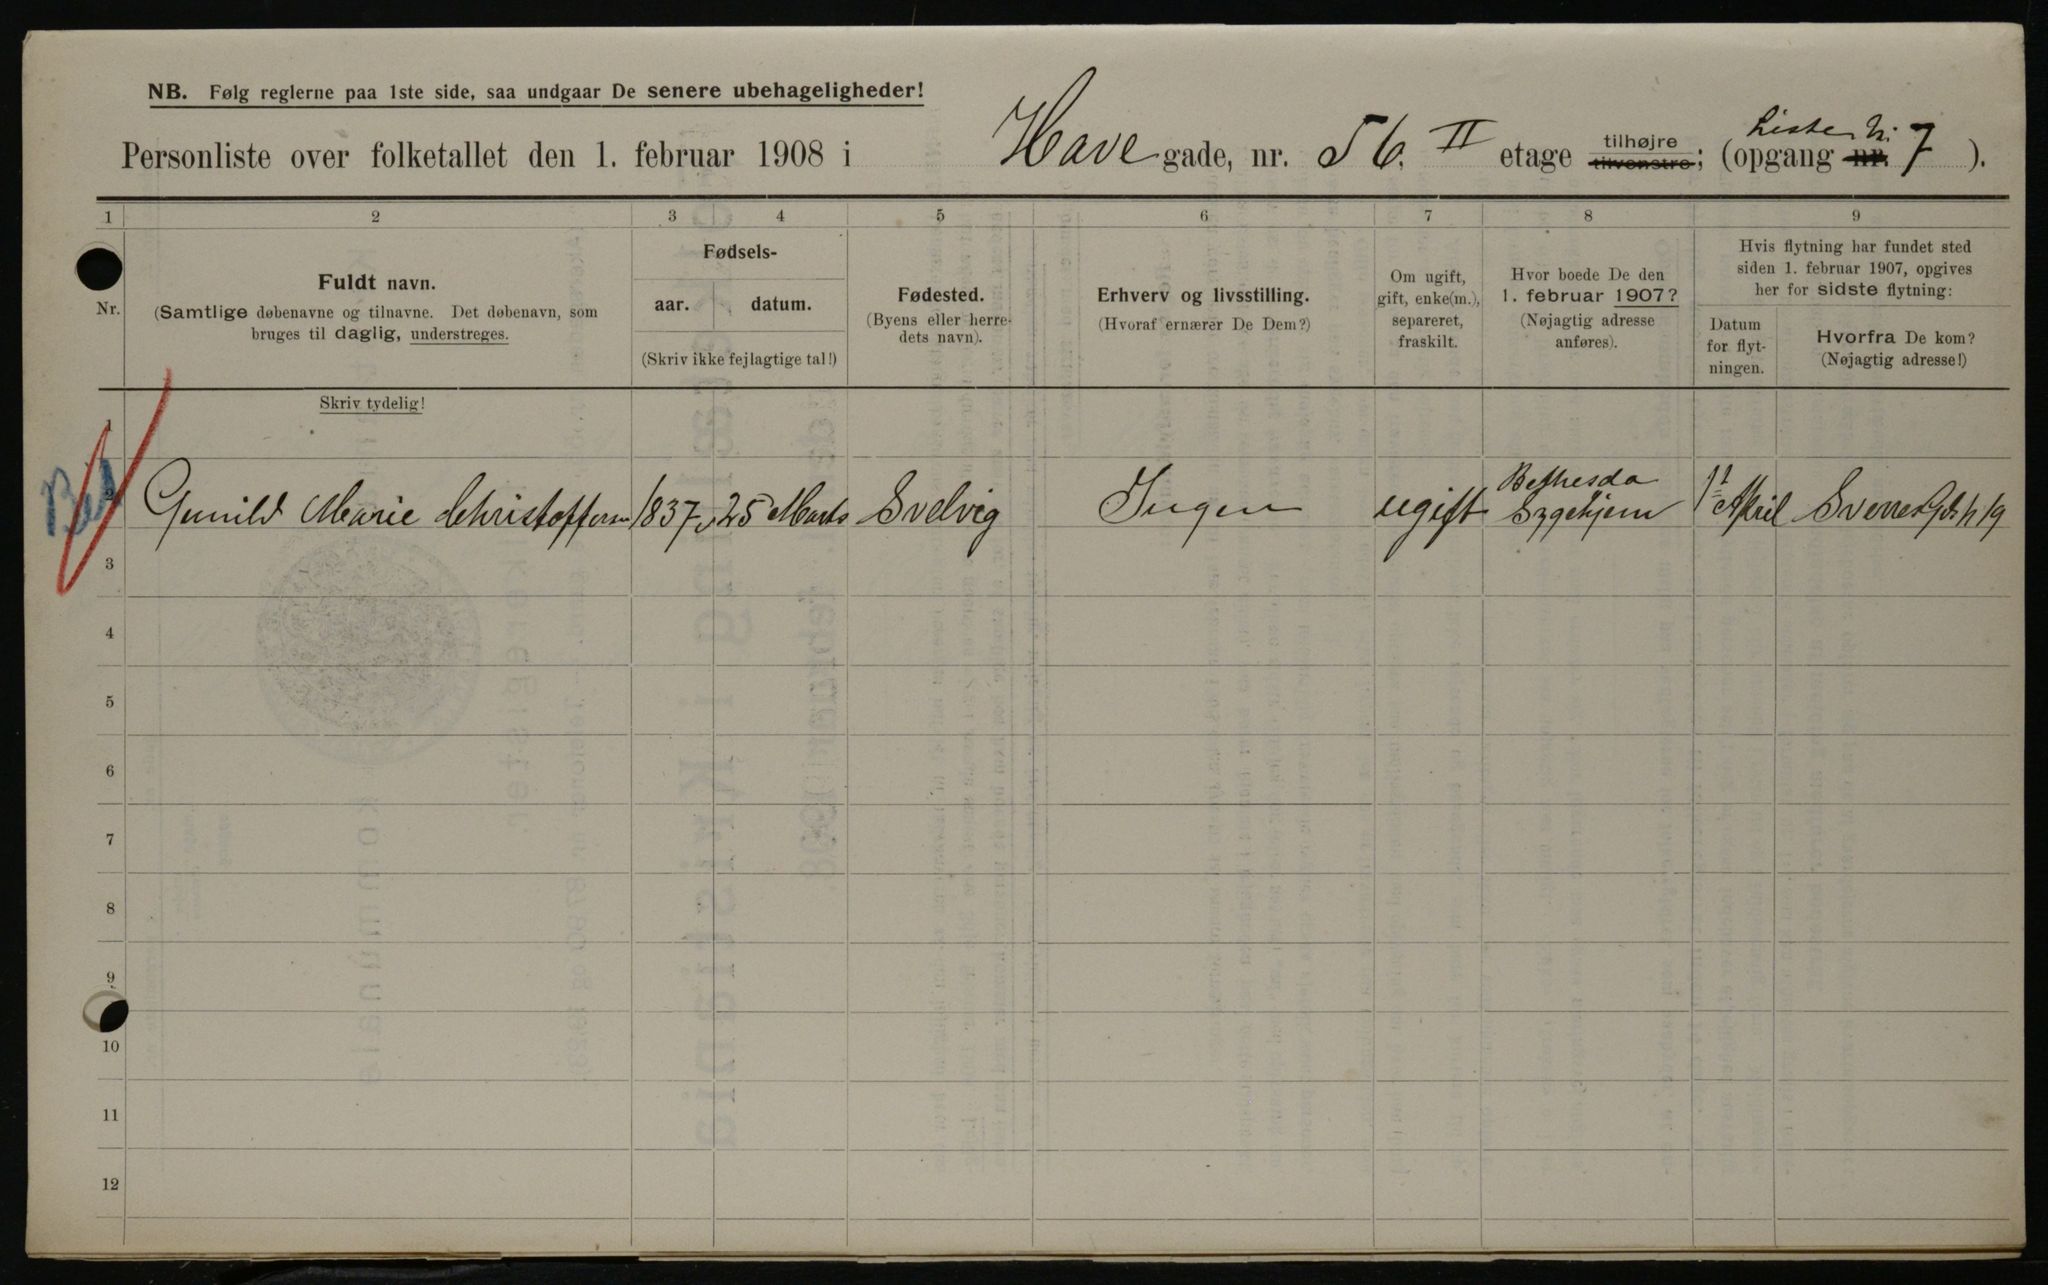 NB. Følg reglerne paa 1ste side, saa undgaar De senere ubehageligheder!
Personliste over folketallet den 1. februar 1908 i Have gade, nr. 56. II etage tilhøjre tilvenstre; (opgang nr. Liste N. 7 ).
1 2 3 4 5 6 7 8 9
Nr.
Fuldt navn.
(Samtlige døbenavne og tilnavne. Det døbenavn, som
bruges til daglig, understreges.
Skriv tydelig!
Fødsels-
aar. datum.
(Skriv ikke fejlagtige tal!)
Fødested.
(Byens eller herre-
dets navn).
Erhverv og livsstilling.
(Hvoraf ernærer De Dem?)
Om ugift,
gift, enke(m.),
separeret,
fraskilt.
Hvor boede De den
1. februar 1907?
(Nøjagtig adresse
anføres).
Hvis flytning har fundet sted
siden 1. februar 1907, opgives
her for sidste flytning:
Datum
for flyt-
ningen.
Hvorfra De kom?
(Nøjagtig adresse!)
1
2 Gunild Marie Christoffersen 1837 25 Marts Svelvig Ingen ugift Bethesda Sygehjem 1st April Sverresgd. 19
3
4
5
6
7
8
9
10
11
12